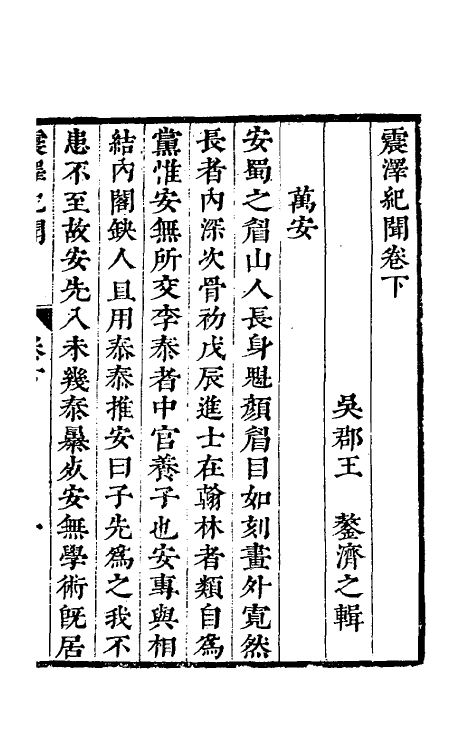 震澤紀聞卷下
吳郡王　鏊濟之輯
萬安
安蜀之眉山人長身魁顏眉目如刻畫外寬然
長者內深次骨初戊辰進士在翰林者類自為
黨惟安無所交李泰者中官養子也安專與相
結內閣缺人且用泰泰推安曰子先為之我不
患不至故安先入未幾泰暴死安無學術旣居
震澤紀聞　卷下　一